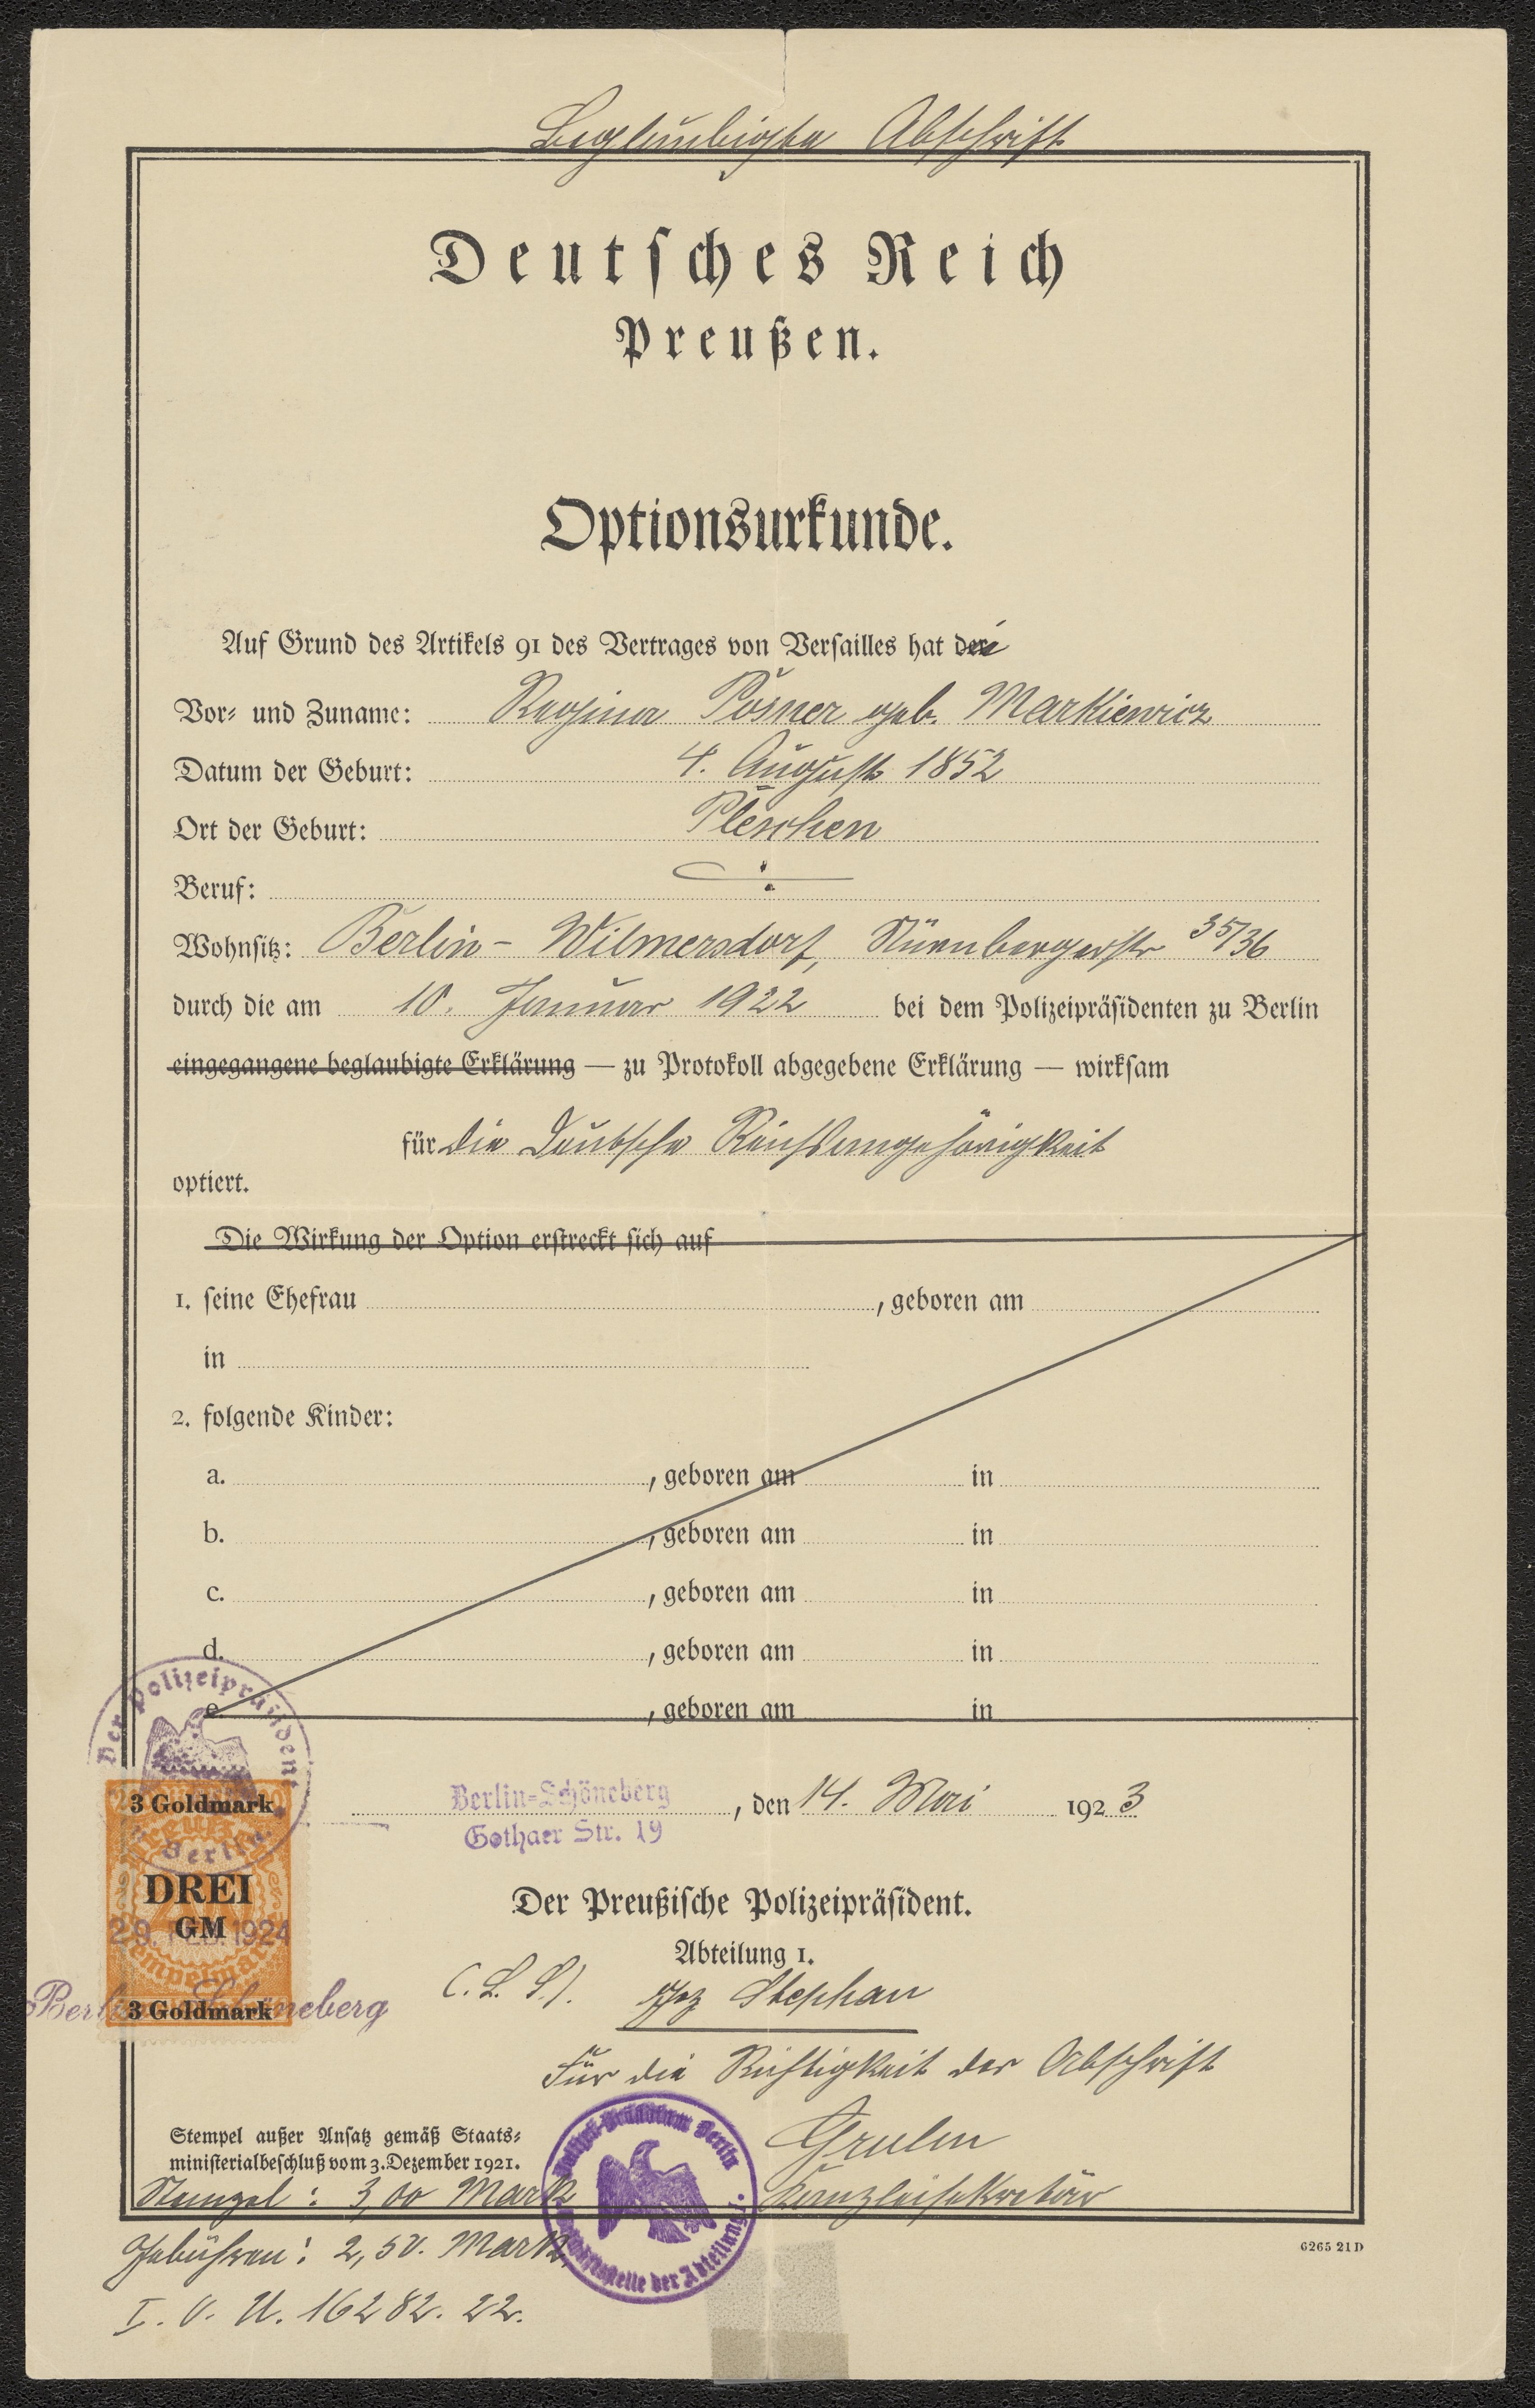 Beglaubigte Abschrift
Deutsches Reich
Preußen.
Optionsurkunde.
Auf Grund des Artikels 91 des Vertrages von Versailles hat die
Vor- und Zuname: Regina Posner geb. Markiewicz
Datum der Geburt: 4. August 1852
Ort der Geburt: Pleschen
Beruf: ÷
Wohnsitz: Berlin-Wilmersdorf, Nürnbergerstr 35/36
durch die am 10. Januar 1922 bei dem Polizeipräsidenten zu Berlin
eingegangene beglaubigte Erklärung — zu Protokoll abgegebene Erklärung — wirksam
für die Deutsche Reichsangehörigkeit
optiert.
Die Wirkung der Option erstreckt sich auf
1. seine Ehefrau , geboren am
in
2. folgende Kinder:
a. , geboren am in
b. , geboren am in
c. , geboren am in
d. , geboren am in
e. , geboren am in
Der Polizeipräsident
Berlin
Berlin-Schöneberg , den 14. Mai 1923
Gothaer Str. 19
3 Goldmark
DREI
GM
29. FEB. 1924
3 Goldmark
Berlin-Schöneberg
Der Preußische Polizeipräsident.
Abteilung 1.
(L. S.). gez Stephan
Für die Richtigkeit der Abschrift
Stempel außer Ansatz gemäß Staats-
ministerialbeschluß vom 3. Dezember 1921.
Kanzleisekretär
Stempel: 3,00 Mark
Polizei-Präsidium Berlin
der Abteilung I.
Gebühren: 2,50. Mark
6265 21 D
I. O. U. 16282. 22.